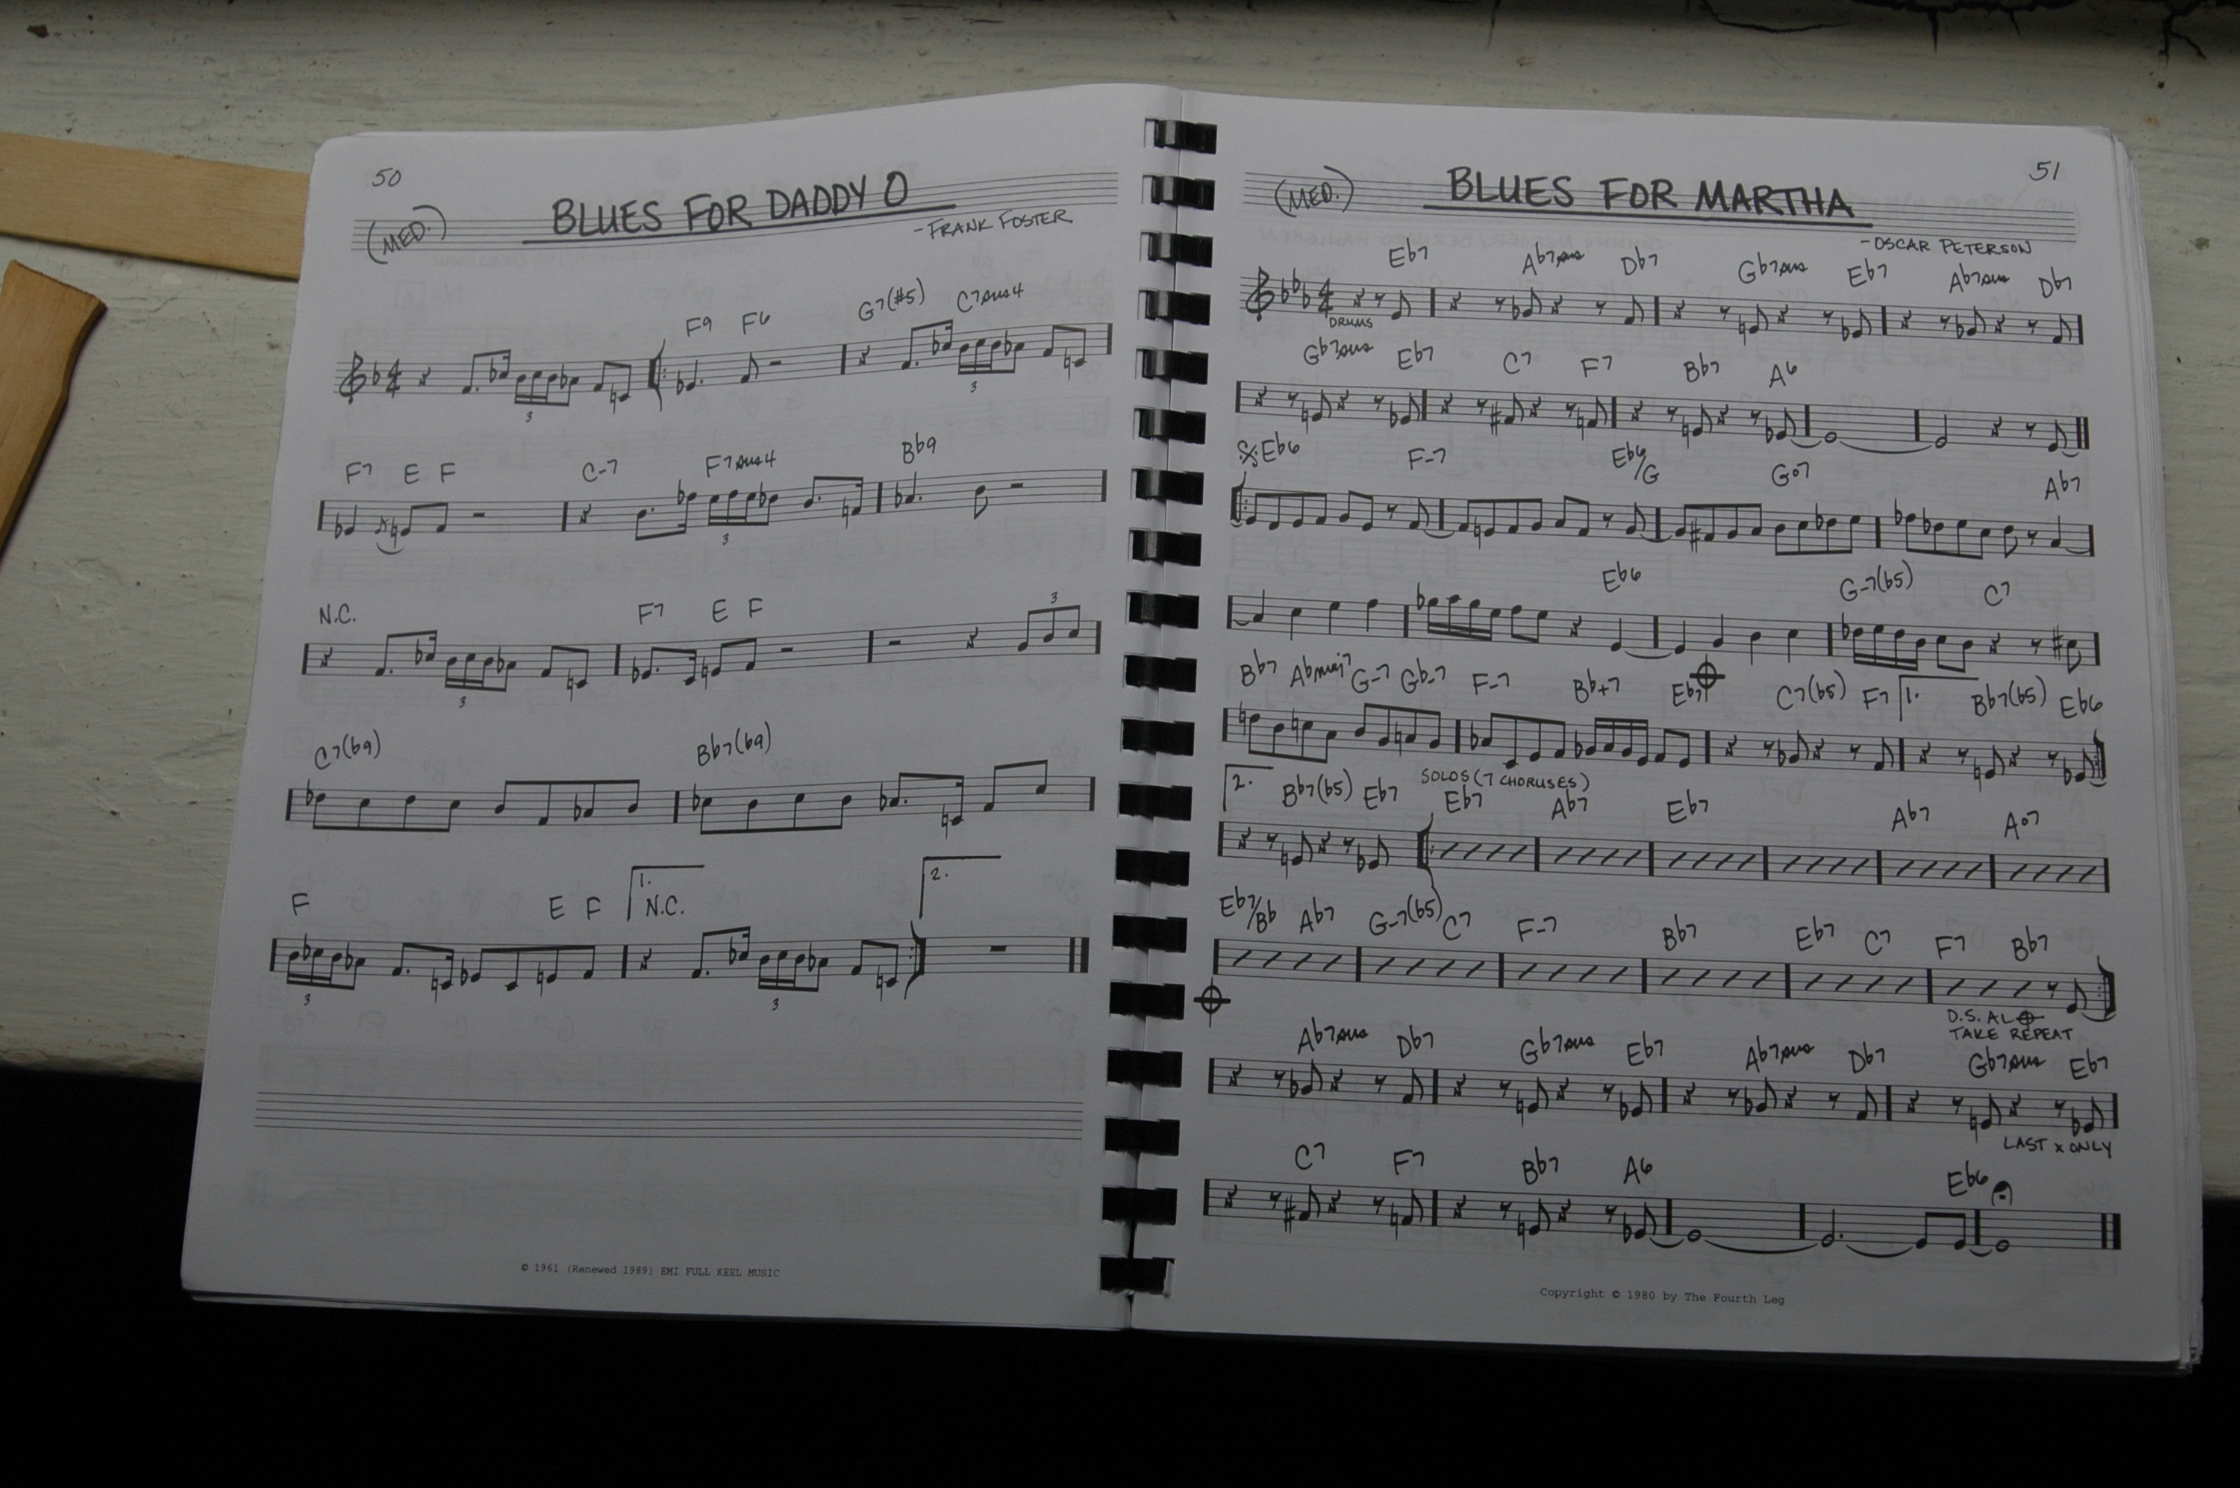 50
(MED.)
BLUES FOR DADDY O
- FRANK FOSTER
F9 F6 G7(#5) C7sus4
3 3
F7 E F C-7 F7sus4 Bb9
3
N.C. F7 E F
3 3
C7(b9) Bb7(b9)
F E F 1. N.C. 2.
3 3
© 1961 (Renewed 1989) EMI FULL KEEL MUSIC
51
(MED.)
BLUES FOR MARTHA
- OSCAR PETERSON
Eb7 Ab7sus Db7 Gb7sus Eb7 Ab7sus Db7
DRUMS
Gb7sus Eb7 C7 F7 Bb7 A6
Eb6 F-7 Eb6/G G°7 Ab7
Eb6 G-7(b5) C7
Bb7 Abmaj7 G-7 Gb-7 F-7 Bb+7 Eb7 C7(b5) F7 1. Bb7(b5) Eb6
2. Bb7(b5) Eb7 SOLOS (7 CHORUSES)
Eb7 Ab7 Eb7 Ab7 A°7
Eb7/Bb Ab7 G-7(b5) C7 F-7 Bb7 Eb7 C7 F7 Bb7
D.S. AL
TAKE REPEAT
Ab7sus Db7 Gb7sus Eb7 Ab7sus Db7 Gb7sus Eb7
LAST x ONLY
C7 F7 Bb7 A6 Eb6
Copyright © 1980 by The Fourth Leg